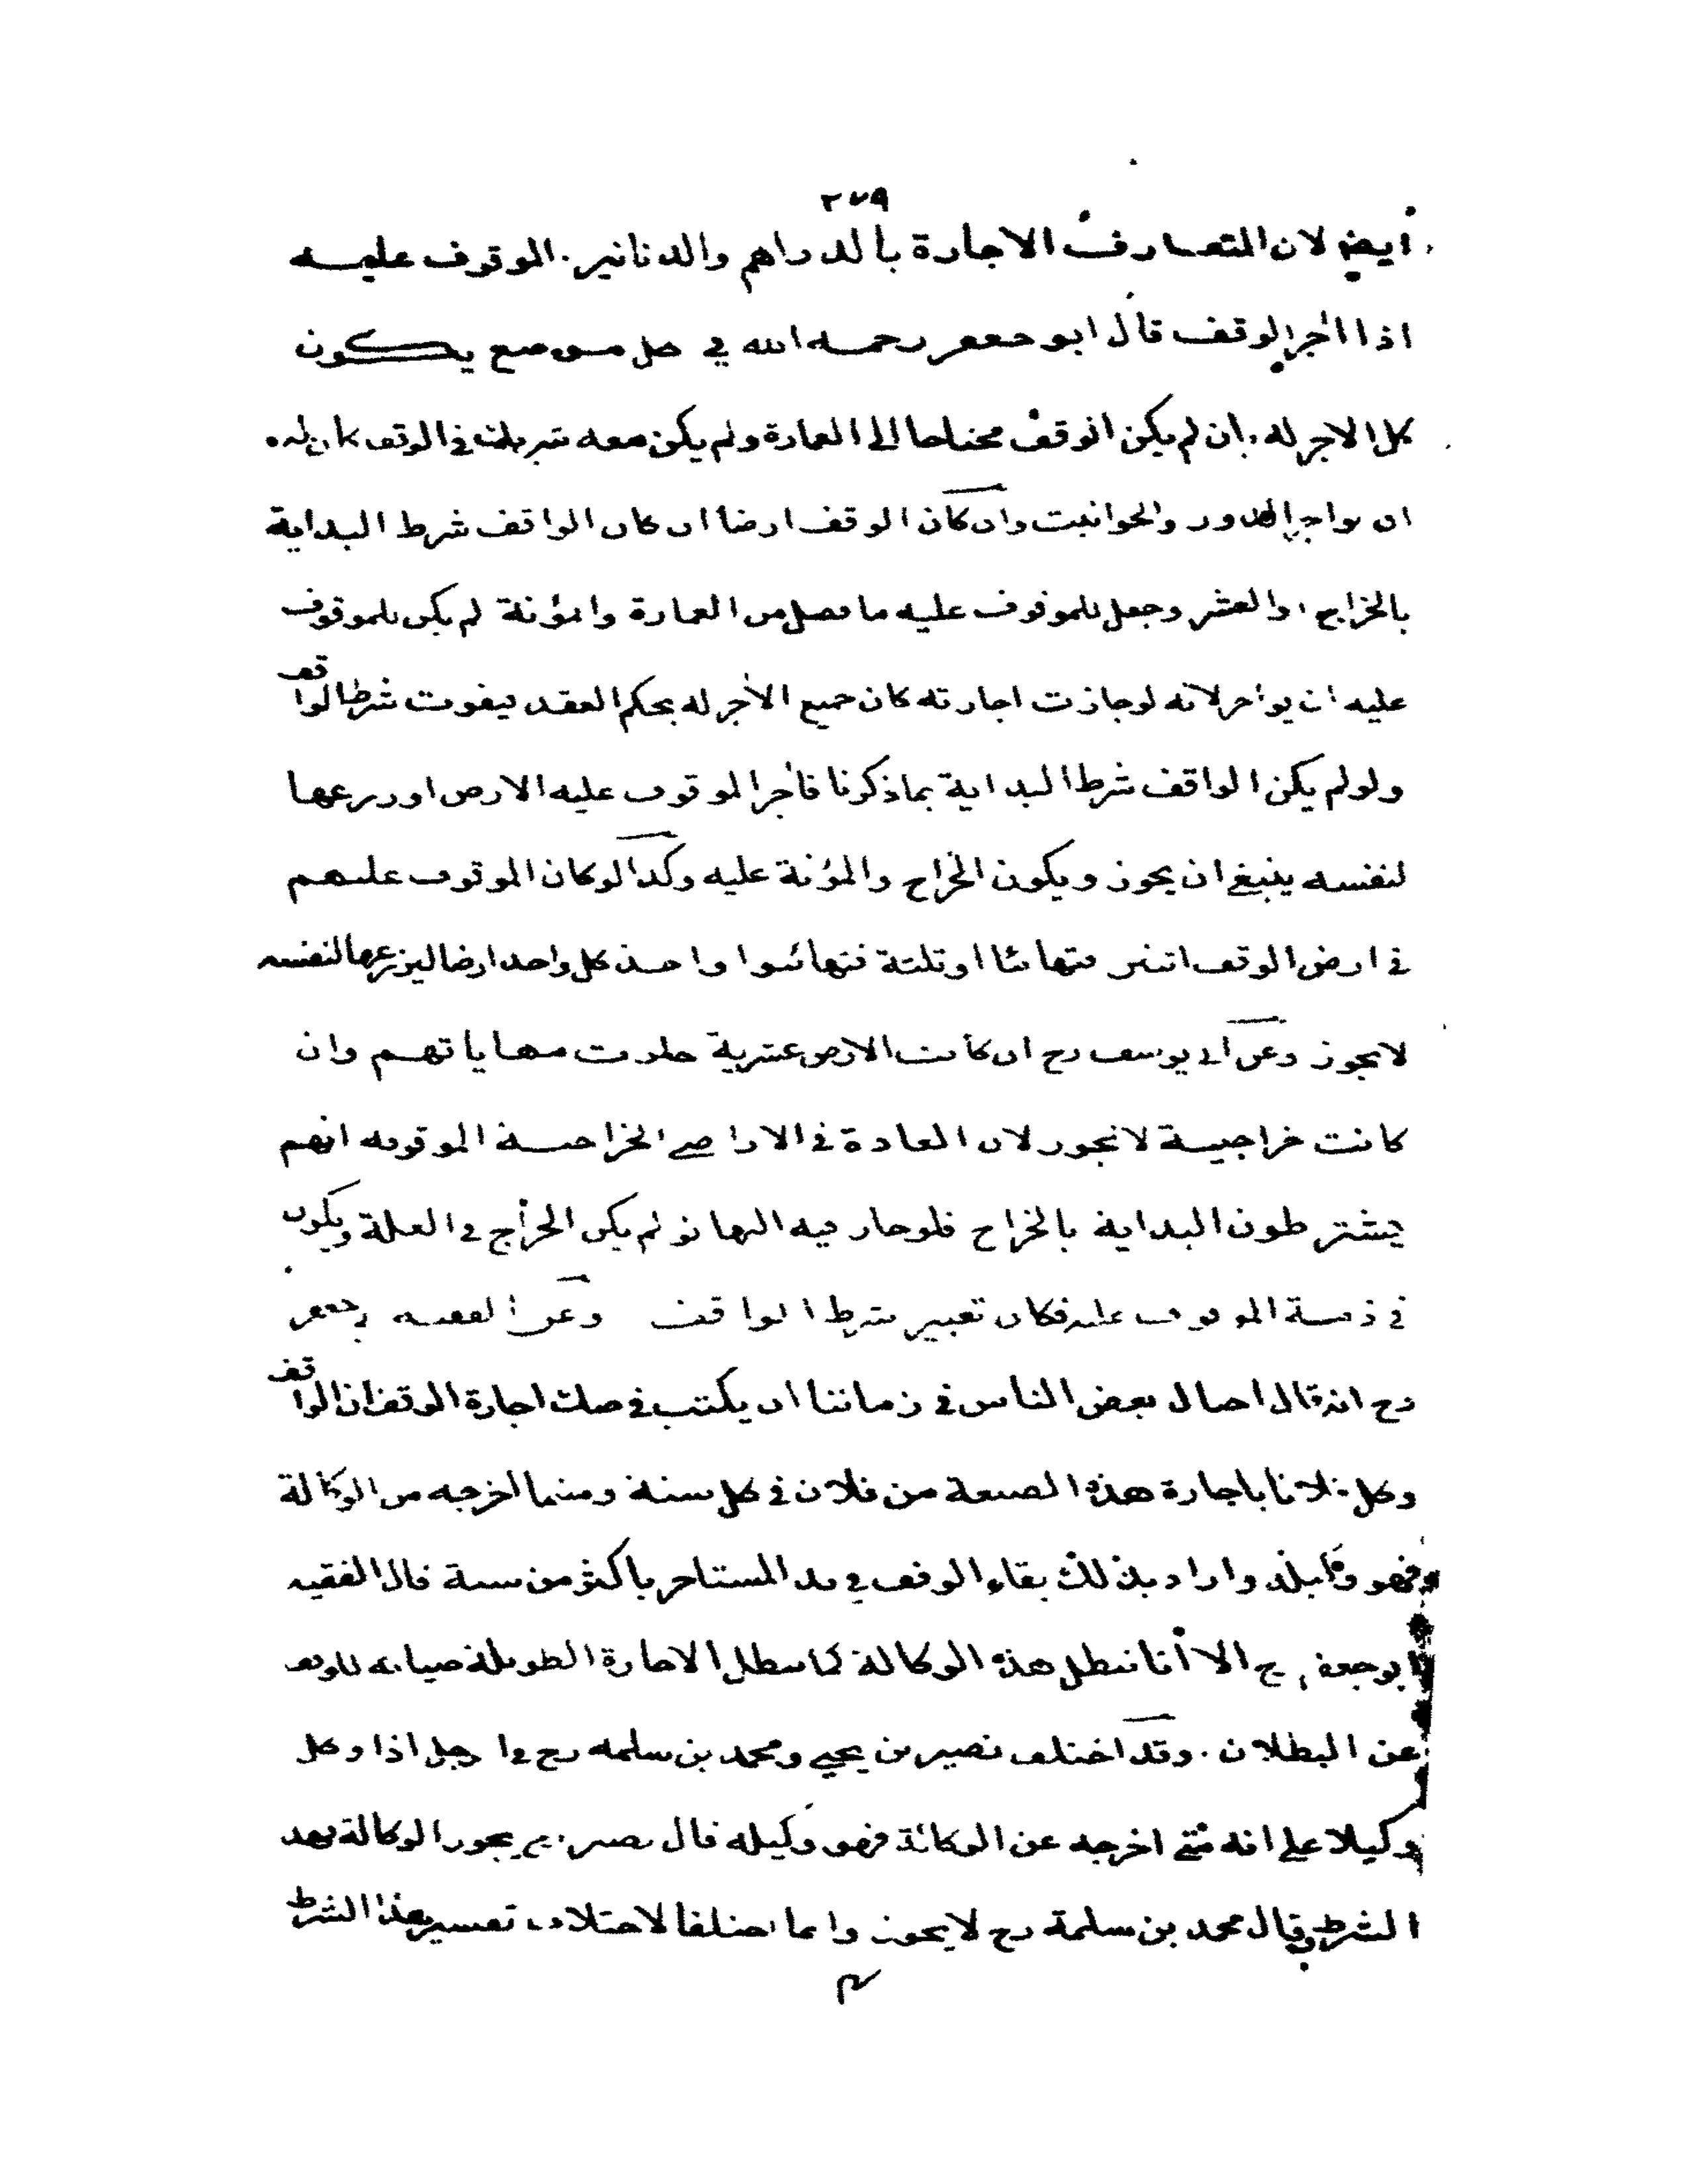 ٢٧٩
ايضا لان المتعارف الاجارة بالدراهم والدنانير. الموقوف عليه
اذا اجر الوقف قال ابو جعفر رحمه الله في كل موضع يكون
كل الاجر له بان لم يكن الوقف محتاجا الى العمارة ولم يكن معه شريك في الوقف كان له
ان يواجر الدور والحوانيت وان كان الوقف ارضا ان كان الواقف شرط البداية
بالخراج او العشر وجعل للموقوف عليه ما فضل من العمارة والمؤنة لم يكن للموقوف
عليه ان يواجر لانه لو جازت اجارته كان جميع الاجر له بحكم العقد فيفوت شرط الواقف
ولو لم يكن الواقف شرط البداية بما ذكرنا فاجر الموقوف عليه الارض او زرعها
لنفسه ينبغي ان يجوز ويكون الخراج والمؤنة عليه وكذا لو كان الموقوف عليهم
في ارض الوقف اثنين فتهائئا او ثلثة فتهائسوا واخذ كل واحد ارضا ليزرعها لنفسه
لا يجوز وعن ابي يوسف رح ان كانت الارض عشرية جازت مهاياتهم وان
كانت خراجية لا تجوز لان العادة في الاراضي الخراجية الموقوفه انهم
يشترطون البداية بالخراج فلو جاز فيه التهانؤ لم يكن الخراج في الغلة ويكون
في ذمة الموقوف عليه فكان تغيير شرط الواقف وعن الفقيه ابي جعفر
رح انه قال احتال بعض الناس في زماننا ان يكتب في صك اجارة الوقف ان الواقف
وكل فلانا باجارة هذه الضيعة من فلان في كل سنة ومتى ما اخرجه من الوكالة
فهو وكيله واراد بذلك بقاء الوقف في يد المستاجر باكثر من سنة قال الفقيه
ابو جعفر رح الا انا نبطل هذه الوكالة كما نبطل الاجارة الطويلة صيانة للوقف
عن البطلان. وقد اختلف نصير بن يحيى ومحمد بن سلمه رح في رجل اذا وكل
وكيلا على انه متى اخرجه عن الوكالة فهو وكيله قال نصير رح يجوز الوكالة بهذا
الشرط وقال محمد بن سلمة رح لا يجوز وانما اختلفا لاختلاف تفسير هذا الشرط